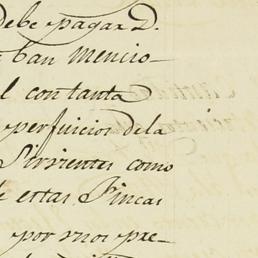 debe pagar D.
ban mencio-
l con tanta
perjuicios dela
Sirvientes como
e estas Fincas
por unos pre-